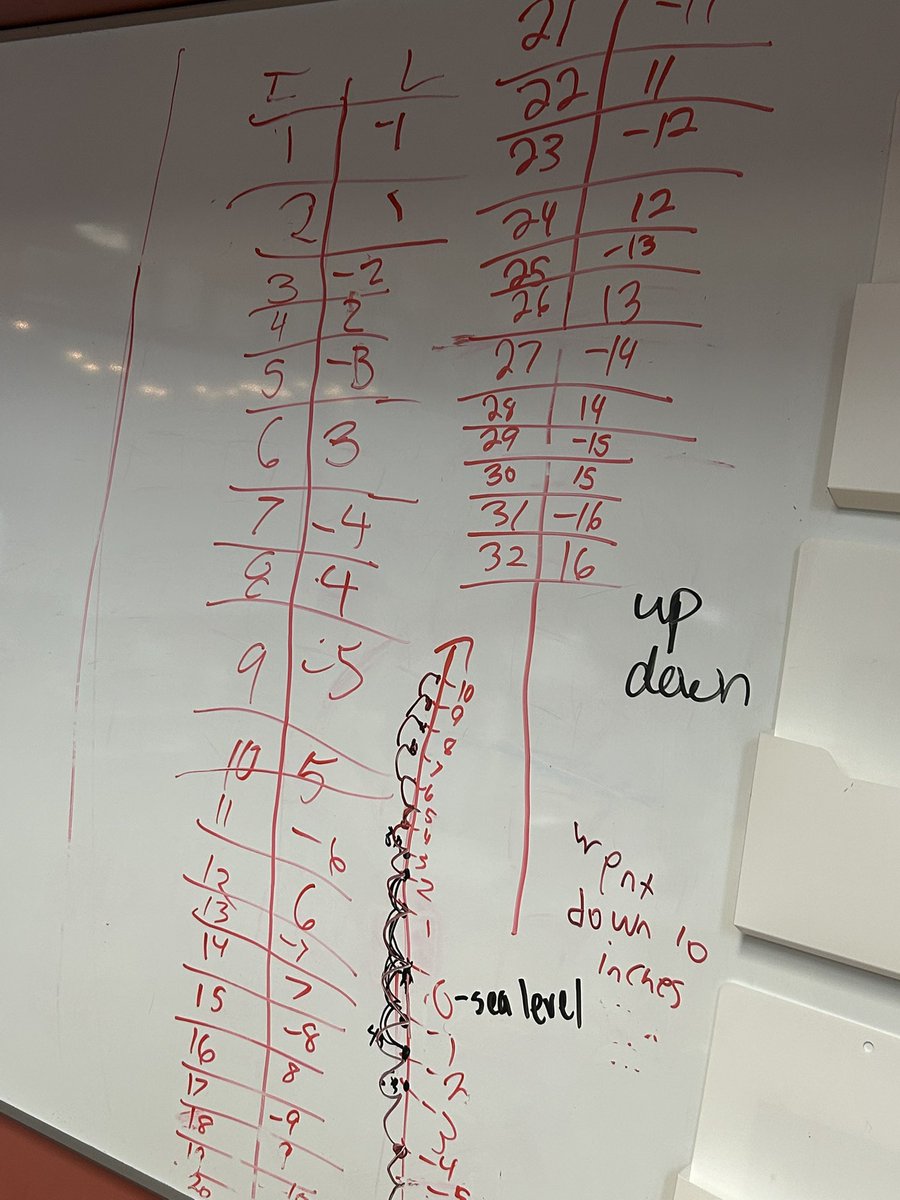 I L
1 -1
2 1
3 -2
4 2
5 -3
6 3
7 -4
8 4
9 -5
10 5
11 -6
12 6
13 -7
14 7
15 -8
16 8
17 -9
18
19
20
21 -11
22 11
23 -12
24 12
25 -13
26 13
27 -14
28 14
29 -15
30 15
31 -16
32 16
up
down
10
9
8
7
6
5
4
3
2
1
0-sea level
-1
-2
-3
-4
-5
down 10
inches